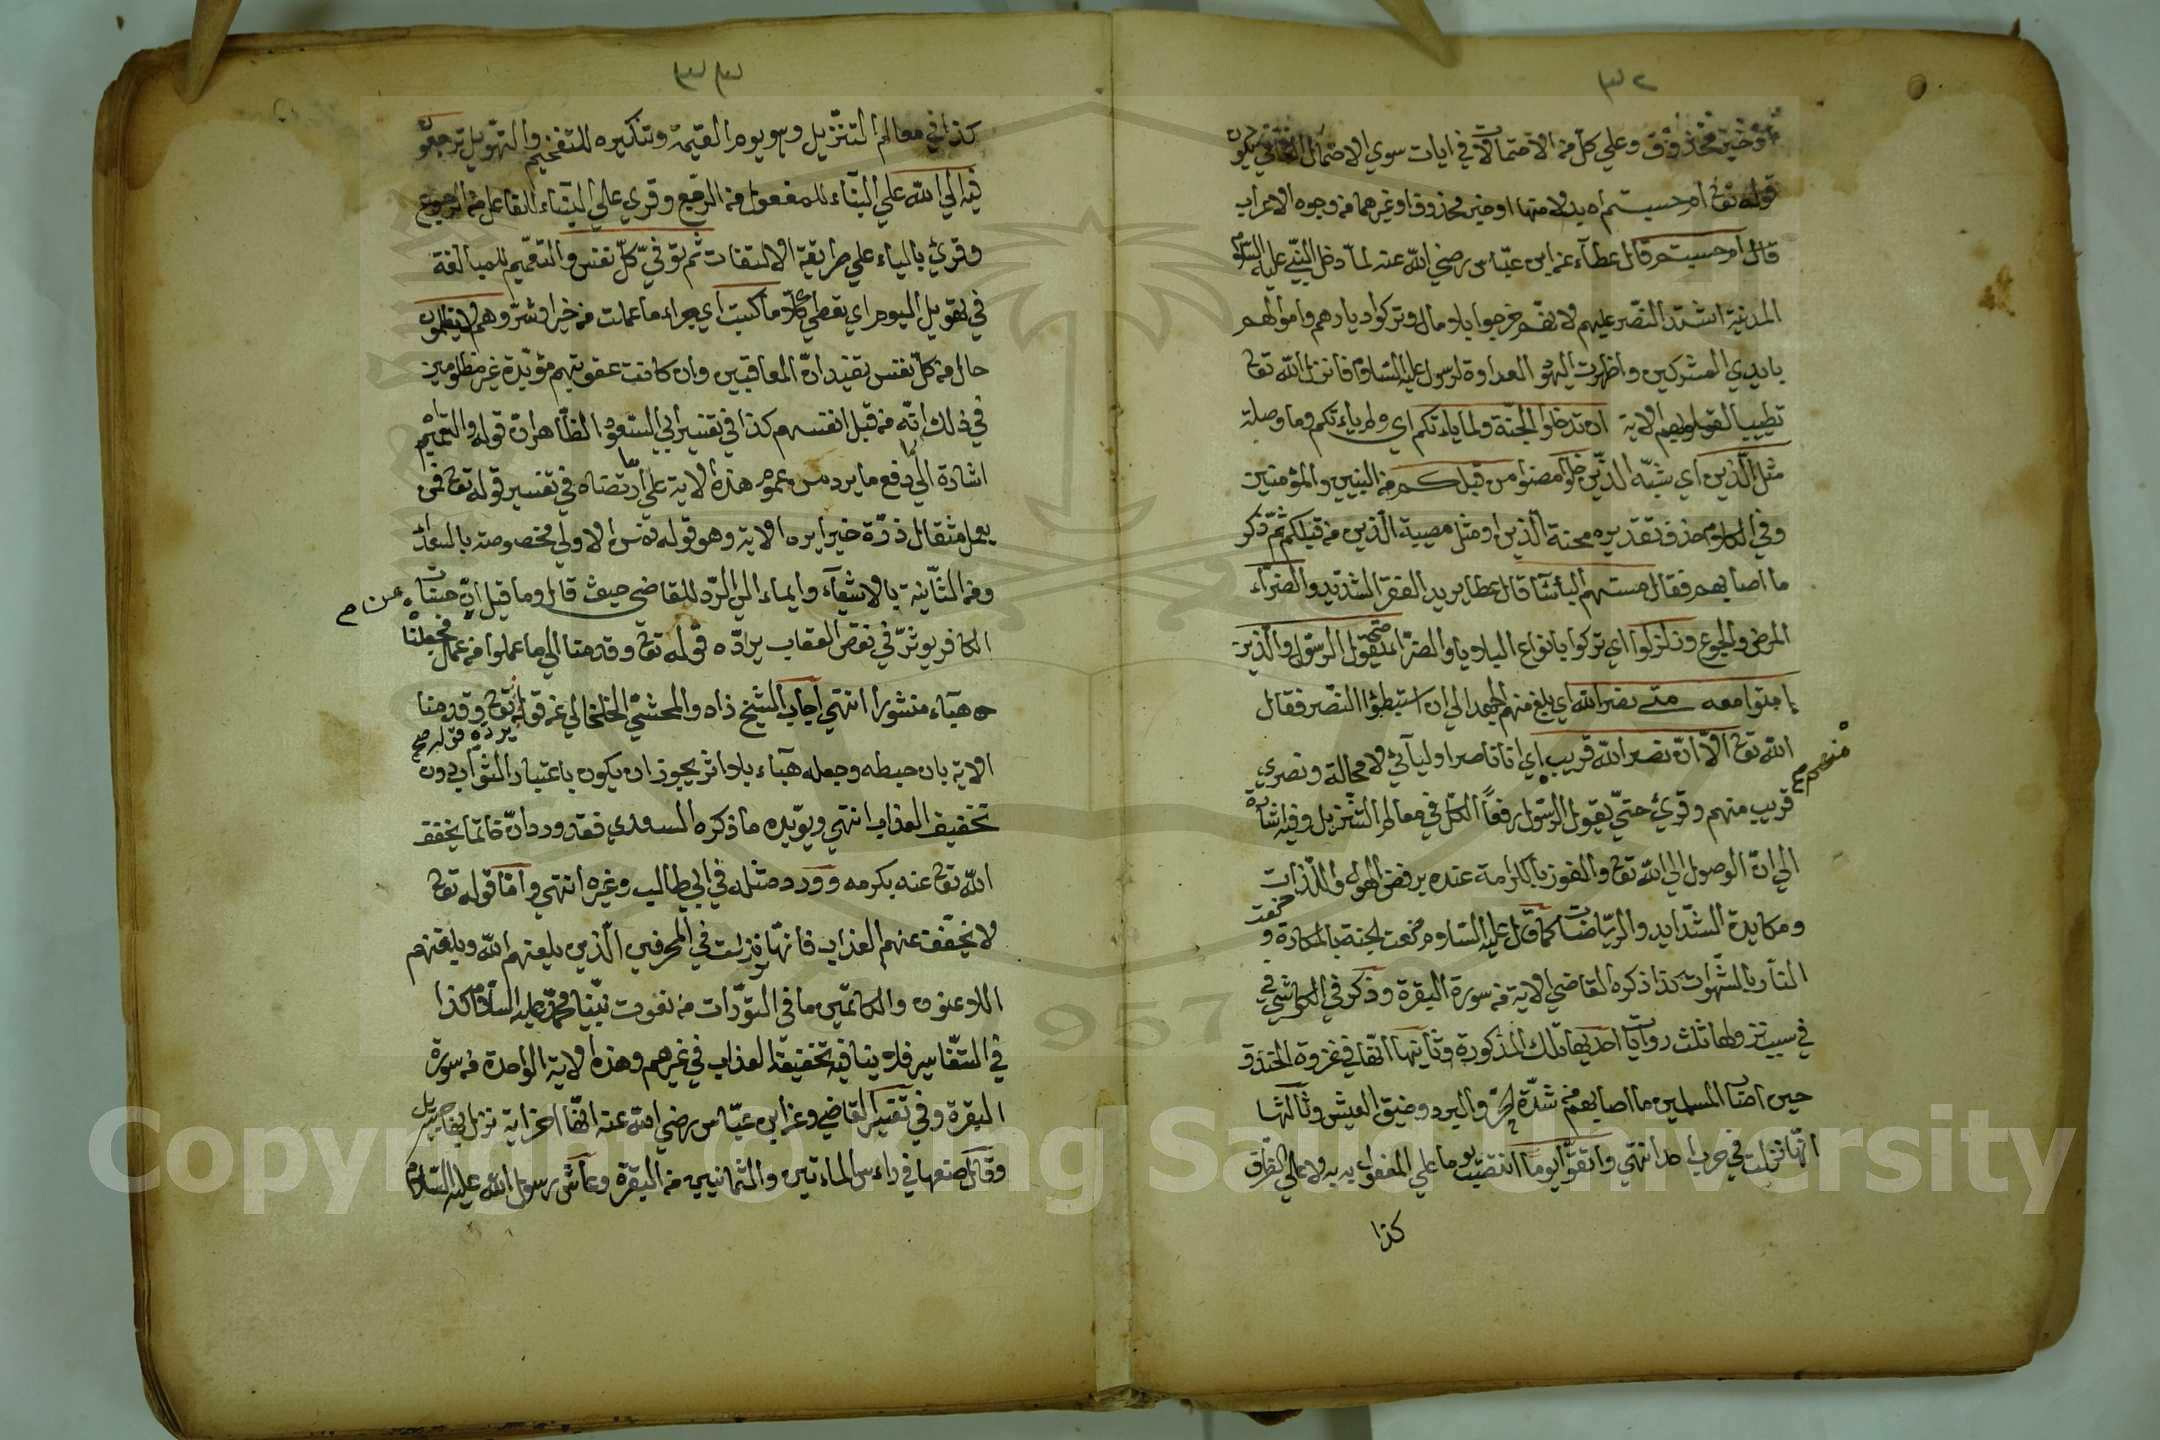 ٣٢
او خبر محذوف وعلي كل من الاحتمالات في ايات سوي الاحتمال الثاني يكون
قوله تع ام حسبتم اه بدلا منها او خبر محذوف او غيرهما من وجوه الاعراب
قال ام حسبتم قال عطاء عن ابن عباس رضي الله عنه لما دخل النبي عليه السلام
المدينة اشتد الضر عليهم لانهم خرجوا بلا مال وتركوا ديارهم واموالهم
بايدي المشركين واظهرت اليهود العداوة لرسول عليه السلام فانزل الله تع
تطييبا لقلوبهم الاية ان تدخلوا الجنة ولما يأتكم اي ولم يأتكم وما وصلة
مثل الذين اي شبه الذين خلوا مضوا من قبلكم من النبيين والمؤمنين
وفي الكلام حذف تقديره محنة الذين او مثل مصيبة الذين من قبلكم ثم ذكر
ما اصابهم فقال مستهم البأساء قال عطا يريد الفقر الشديد والضراء
المرض والجوع وزلزلوا اي تركوا بانواع البلايا والضراء حتي يقول الرسول والذين
امنوا معه متي نصر الله اي بلغ منهم الجهد الي ان استبطؤا النصر فقال
الله تع الا ان نصر الله قريب اي انا ناصر اوليائي لا محالة ونصري
قريب منهم وقرئ حتي يقول الرسول رفعا الكل في معالم التنزيل وفيه اشارة
الي ان الوصول الي الله تع والفوز بالكرامة عنده برفض الهوي واللذات
ومكابدة الشدايد والرياضات كما قال عليه السلام حفت الجنة بالمكاره و حفت
النار بالشهوات كذا ذكره القاضي الاية من سورة البقرة وذكر في الكواشي في
في سبب نزولها ثلث روايات احديها تلك المذكورة وثانيتها انها في غزوة الخندق
حين اصاب المسلمين ما اصابهم من شدة الحر والبرد وضيق العيش وثالثها
انها نزلت في حرب احد انتهي واتقوا يوما انتصب يوما علي المفعول به لا علي الظرف
كذا
٣٣
كذا في معالم التنزيل وهو يوم القيمة وتنكيره للتفخيم والتهويل ترجعون
فيه الي الله علي البناء للمفعول من الرجع وقري علي البناء الفاعل من الرجوع
وقرئ بالياء علي طريقة الالتفات ثم توفي كل نفس والتعميم للمبالغة
في تهويل اليوم اي تعطي كلا ما كسبت اي جزاء ما عملت من خير او شر وهم لا يظلمون
حال من كل نفس تفيد ان المعاقبين وان كانت عقوبتهم مؤبدة غير مظلومين
في ذلك انه من قبل انفسهم كذا في تفسير ابي السعود الظاهر ان قوله والتعميم
اشارة الي دفع ما يرد من عموم هذه الاية علي ما ارتضاه في تفسير قوله تع فمن
يعمل مثقال ذرة خيرا يره الاية وهو قوله من الاولي مخصوصة بالسعداء
ومن الثانية بالاشقياء وايماء الي الرد للقاضي حيث قال وما قيل ان حسنات
الكافر يؤثر في نقص العقاب يرده قوله تع وقدمنا الي ما عملوا من عمل فجعلنا
ه هباء منثورا انتهي اجاب الشيخ زاده والمحشي الخلخالي عن قوله تع وقدمنا
الاية بان حبطه وجعله هباء بلا اثر يجوز ان يكون باعتبار الثواب دون
تخفيف العذاب انتهي ويؤيده ما ذكره السعدي فقد ورد ان حاتما يخفف
الله تع عنه بكرمه وورد مثله في ابي طالب وغيره انتهي واما قوله تع
لا يخفف عنهم العذاب فانها نزلت في المحرفين الذين يلعنهم الله ويلعنهم
اللاعنون والكاتمين ما في التورات من نعوت نبينا محمد عليه السلام كذا
في التفاسير فلا ينافيه تخفيف العذاب في غيرهم وهذه الاية الواحدة من سورة
البقرة وفي تفسير القاضي وعن ابن عباس رضي الله عنه انها اخر اية نزل بها جبرئيل
وقال ضعها في رأس المأتين والثمانين من البقرة وعاش رسول الله عليه السلام
يرده قوله صح
Copyright © King Saud University
1957